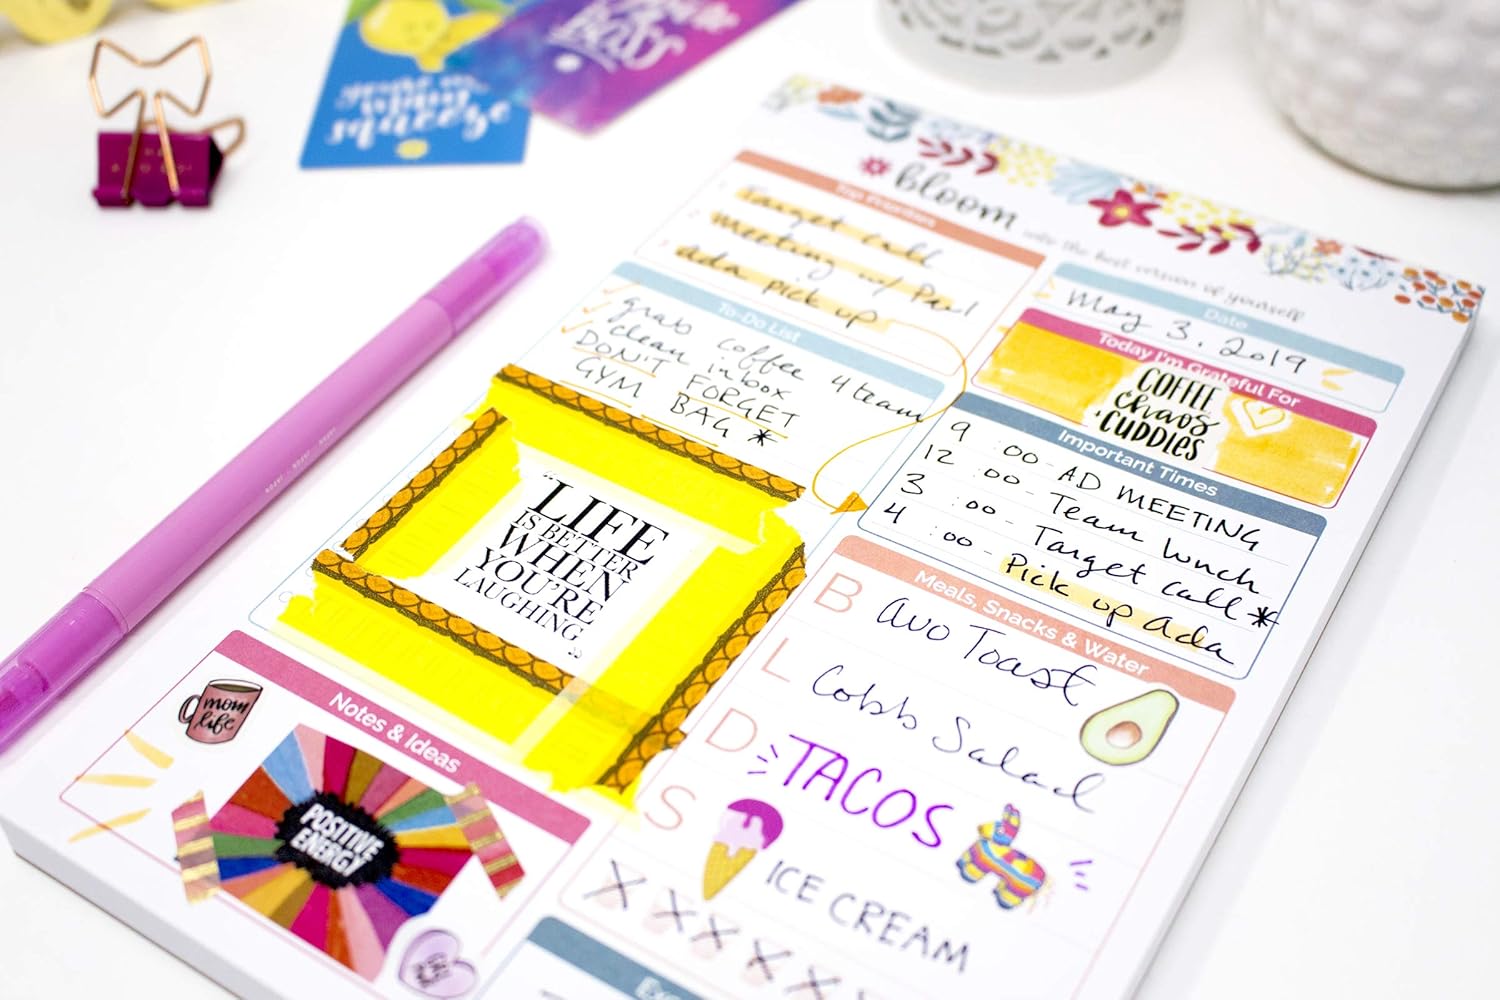 you're my
main squeeze
Boss
bloom
Top Priorities
Target call
meeting w/ Paul
ada pick up
To-Do List
grab coffee 4 team
clean inbox
DON'T FORGET
GYM BAG *
"LIFE
IS BETTER
WHEN
YOU'RE
LAUGHING
Notes & Ideas
mom
life
POSITIVE
ENERGY
Date
May 3, 2019
Today I'm Grateful For
COFFEE
chaos
CUDDLES
Important Times
9 :00 - AD MEETING
12 :00 - Team lunch
3 :00 - Target call *
4 :00 - Pick up Ada
Meals, Snacks & Water
B Avo Toast
L Cobb Salad
D TACOS
S ICE CREAM
X X X X X